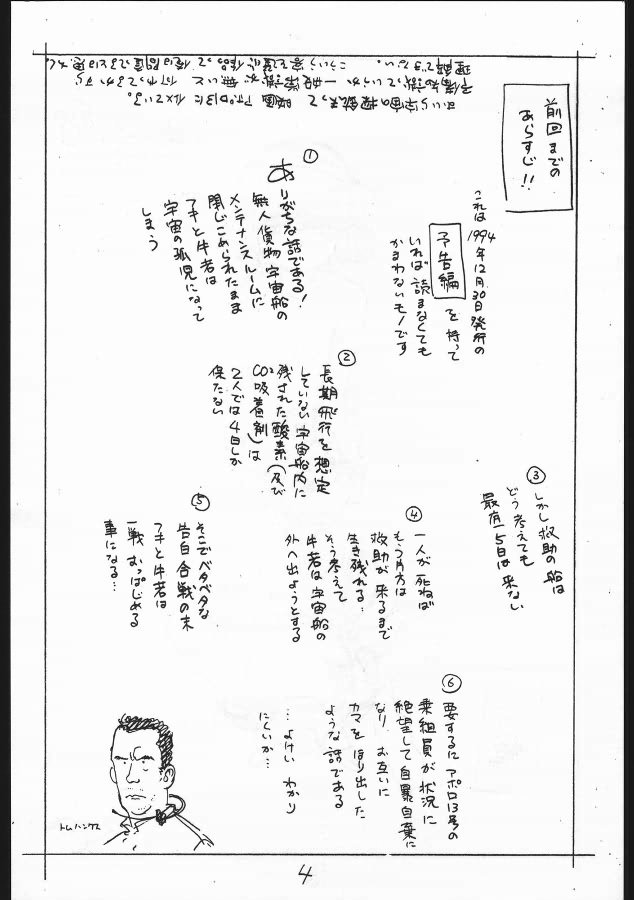 前回までの
あらすじ!!
これは1994年12月30日発行の
予告編を持って
いれば読まなくても
かまわないモノです
①
ありがちな話である!
無人貨物宇宙船の
メンテナンスルームに
閉じこめられたまま
アキと牛若は
宇宙の孤児になって
しまう
②
長期飛行を想定
していない宇宙船内に
残された酸素(及び
CO²吸着剤)は
2人では4日しか
保たない
③
しかし救助の船は
どう考えても
最低15日は来ない
④
一人が死ねば
もう片方は
救助が来るまで
生き残れる…
そう考えて
牛若は宇宙船の
外へ出ようとする
⑤
そこでベタベタな
告白合戦の末
アキと牛若は
一戦おっぱじめる
事になる…
⑥
要するにアポロ13号の
乗組員が状況に
絶望して自暴自棄に
なり お互いに
カマをほり出した
ような話である
…よけいわかり
にくいか…
トムハンクス
4